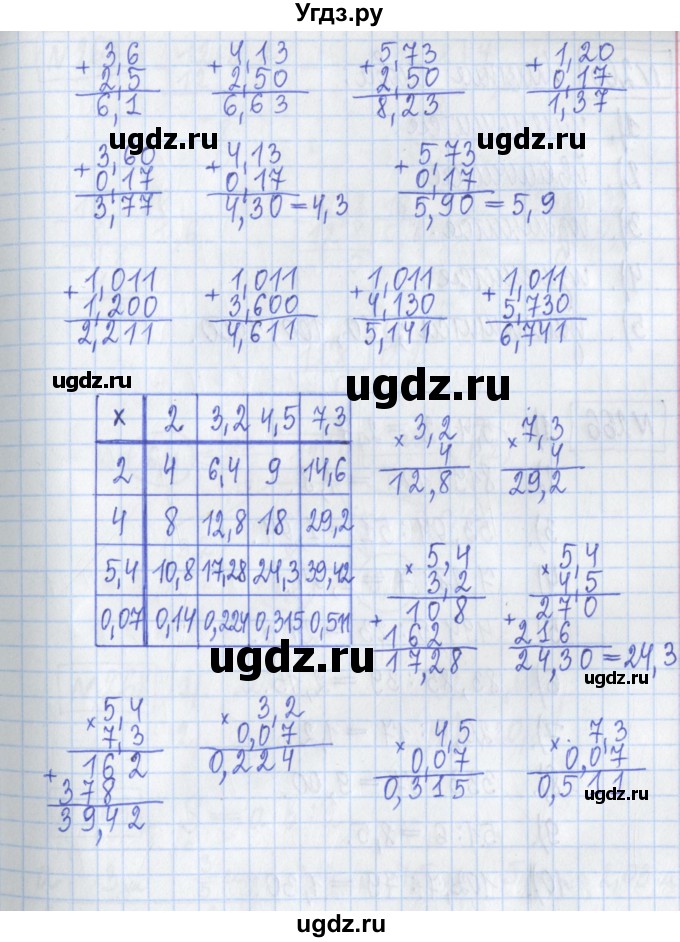 Угдз.ру
+ 3,6 + 4,13 + 5,73 + 1,20
2,5 2,50 2,50 0,17
6,1 6,63 8,23 1,37
ugdz.ru ugdz.ru
+ 3,60 + 4,13 + 5,73
0,17 0,17 0,17
3,77 4,30 = 4,3 5,90 = 5,9
+ 1,011 + 1,011 + 1,011 + 1,011
1,200 3,600 4,130 5,730
2,211 4,611 5,141 6,741
ugdz.ru ugdz.ru
x 2 3,2 4,5 7,3
2 4 6,4 9 14,6
4 8 12,8 18 29,2
5,4 10,8 17,28 24,3 39,42
0,07 0,14 0,224 0,315 0,511
× 3,2 × 7,3
4 4
12,8 29,2
× 5,4 × 5,4
3,2 4,5
108 270
+ 162 + 216
17,28 24,30 = 24,3
ugdz.ru ugdz.ru
× 5,4 × 3,2 × 4,5 × 7,3
7,3 0,07 0,07 0,07
162 0,224 0,315 0,511
+ 378
39,42
ugdz.ru
ugdz.ru